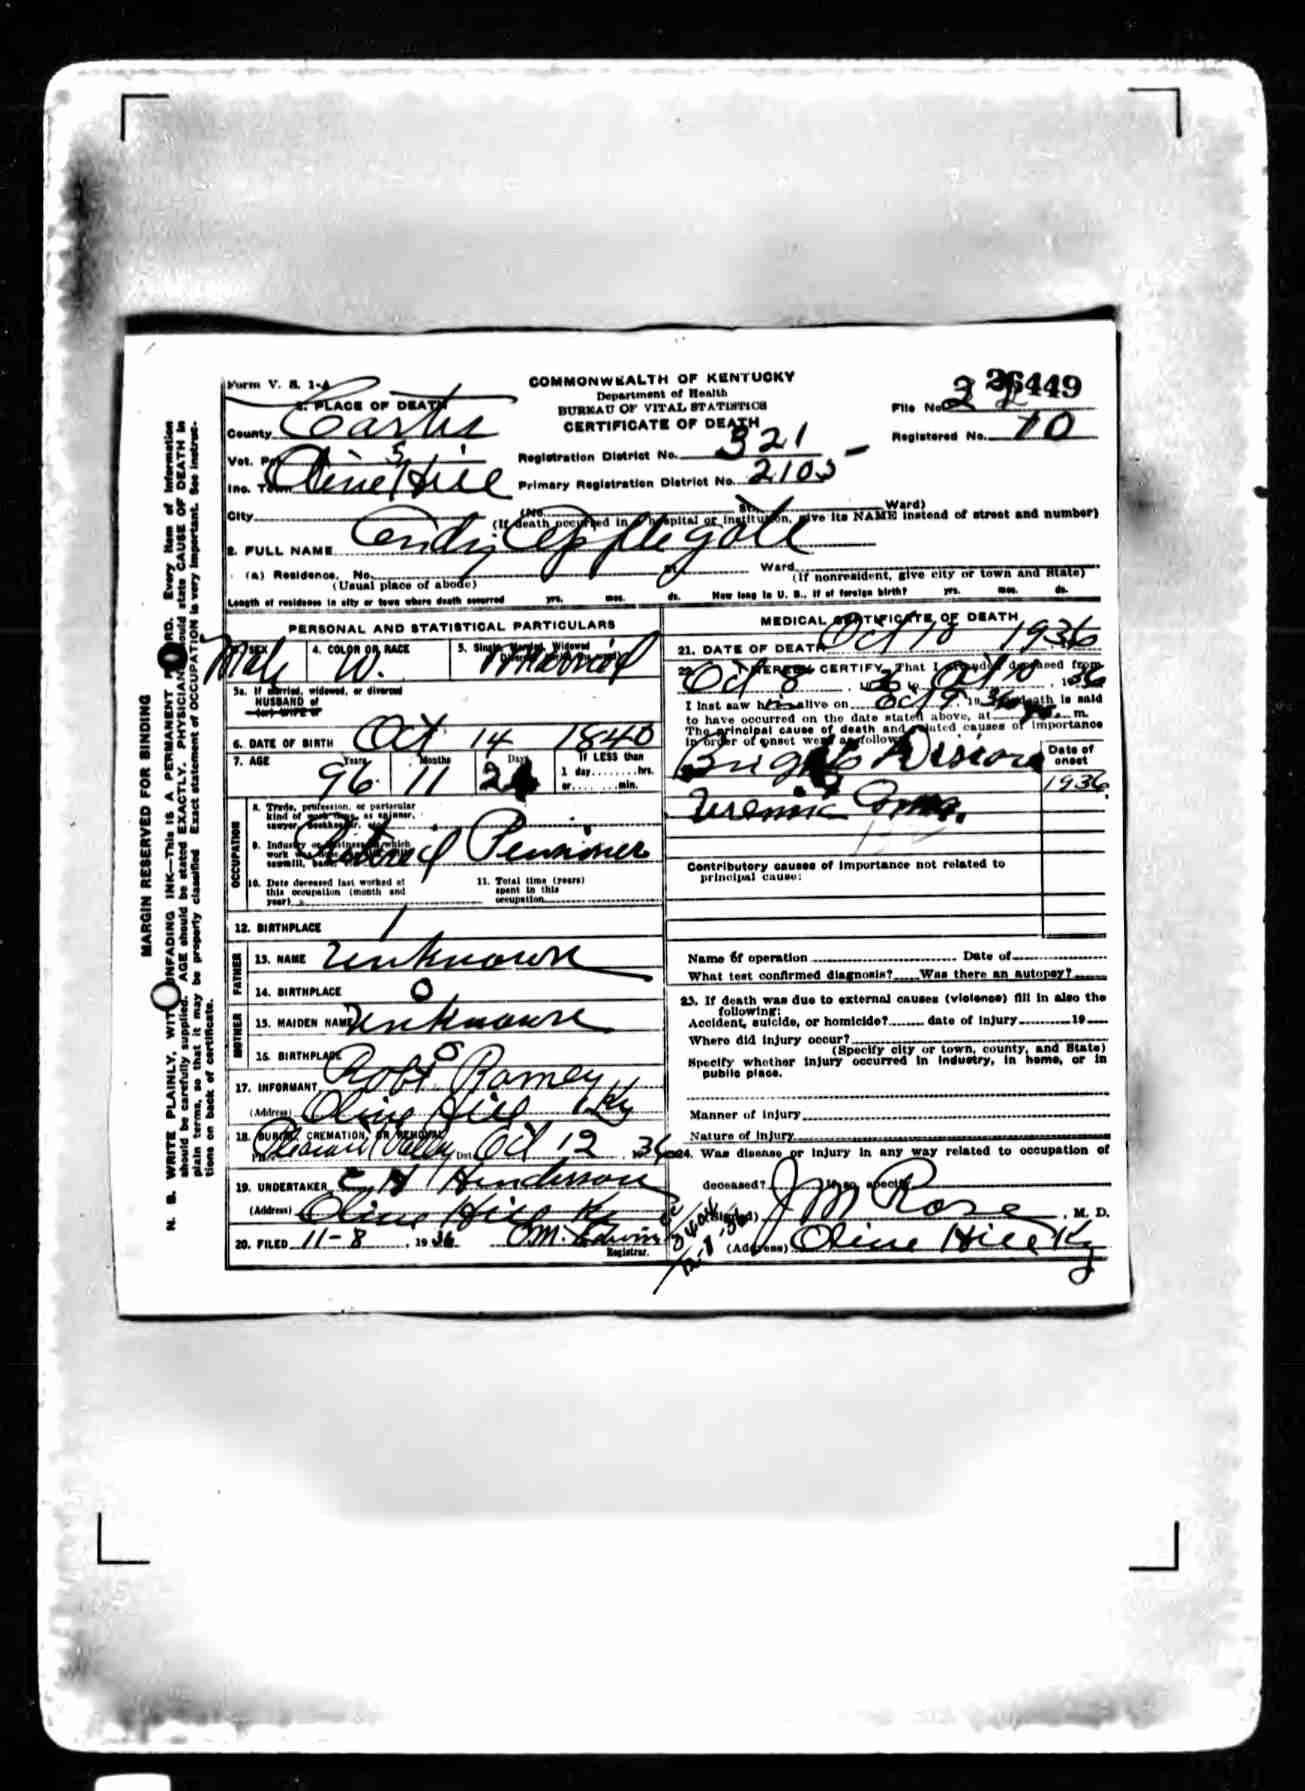 Form V. S. 1-A
COMMONWEALTH OF KENTUCKY
Department of Health
BUREAU OF VITAL STATISTICS
CERTIFICATE OF DEATH
File No. 26449
Registered No. 70
1. PLACE OF DEATH
County Carter
Registration District No. 321
Vot. Pct. 5
Inc. Town Olive Hill
Primary Registration District No. 2105
City (No. St. Ward)
(If death occurred in a hospital or institution, give its NAME instead of street and number)
2. FULL NAME Andy Applegate
(a) Residence. No. St. Ward.
(Usual place of abode) (If nonresident, give city or town and State)
Length of residence in city or town where death occurred yrs. mos. ds. How long in U. S., if of foreign birth? yrs. mos. ds.
PERSONAL AND STATISTICAL PARTICULARS
3. SEX Male
4. COLOR OR RACE W.
5. Single, Married, Widowed Married
5a. If married, widowed, or divorced
HUSBAND of
(or) WIFE of
6. DATE OF BIRTH Oct 14 1840
7. AGE Years 96 Months 11 Days
If LESS than
1 day........hrs.
or........min.
OCCUPATION
8. Trade, profession, or particular
kind of work done, as spinner,
sawyer, bookkeeper, etc.
9. Industry or business in which
work was
Retired Pensioner
10. Date deceased last worked at
this occupation (month and
year)
11. Total time (years)
spent in this
occupation
12. BIRTHPLACE
FATHER
13. NAME Unknown
14. BIRTHPLACE 0
MOTHER
15. MAIDEN NAME Unknown
16. BIRTHPLACE 0
17. INFORMANT Robt Ramey
(Address) Olive Hill Ky
18. BURIAL, CREMATION, OR REMOVAL
Pleasant Valley Date Oct 12 36
19. UNDERTAKER C H Henderson
(Address) Olive Hill Ky
20. FILED 11-8, 1936
Registrar.
MEDICAL CERTIFICATE OF DEATH
21. DATE OF DEATH Oct 10 1936
22. I HEREBY CERTIFY, That I attended deceased from
Oct 8, 1936 to Oct 10, 1936
I last saw him alive on Oct 9, 1936 death is said
to have occurred on the date stated above, at m.
The principal cause of death and related causes of importance
in order of onset were as follows:
Date of onset
Brights Disease
1936
Uremic
Contributory causes of importance not related to
principal cause:
Name of operation Date of
What test confirmed diagnosis? Was there an autopsy?
23. If death was due to external causes (violence) fill in also the
following:
Accident, suicide, or homicide? date of injury 19
Where did injury occur?
(Specify city or town, county, and State)
Specify whether injury occurred in industry, in home, or in
public place.
Manner of injury
Nature of injury
24. Was disease or injury in any way related to occupation of
deceased? If so, specify
(Signed) J M Rose, M. D.
(Address) Olive Hill Ky
MARGIN RESERVED FOR BINDING
N. B. WRITE PLAINLY, WITH UNFADING INK—This is A PERMANENT RECORD. Every item of information
should be carefully supplied. AGE should be stated EXACTLY. PHYSICIAN should state CAUSE OF DEATH in
plain terms, so that it may be properly classified. Exact statement of OCCUPATION is very important. See instruc-
tions on back of certificate.